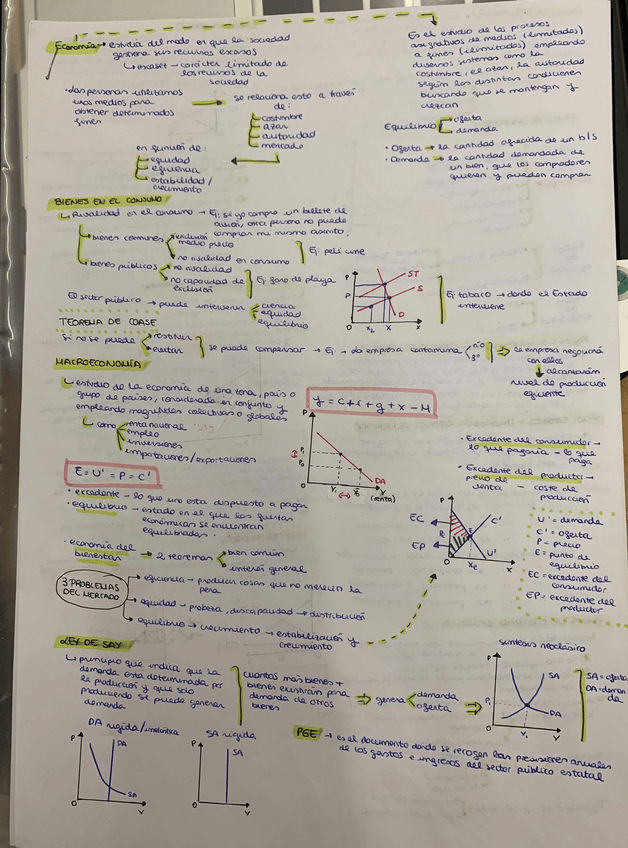 Economía → estudia del modo en que la sociedad
gestiona sus recursos escasos
↳ escasez → carácter limitado de
los recursos de la
sociedad
• las personas utilizamos
unos medios para
obtener determinados
fines
se relaciona esto a través
de:
costumbre
azar
autoridad
mercado
en función de:
equidad
eficiencia
estabilidad/
crecimiento
Es el estudio de los procesos
asignativos de medios (limitados)
a fines (ilimitados) empleando
diversos sistemas como la
costumbre, el azar, la autoridad
según las distintas condiciones
buscando que se mantengan y
crezcan
Equilibrio
oferta
demanda
• Oferta → la cantidad ofrecida de un b/s
• Demanda → la cantidad demandada de
un bien, que los compradores
quieren y pueden comprar
BIENES EN EL CONSUMO
↳ Rivalidad en el consumo → Ej: si yo compro un billete de
avión, otra persona no puede
comprar mi mismo asiento.
bienes comunes
exclusión
medio precio
no rivalidad en consumo
Ej: peli cine
bienes públicos
no rivalidad
no capacidad de
exclusión
Ej: zona de playa
El sector público → puede intervenir
equidad
equilibrio
P
ST
S
P
O
X
D
X
Ej: tabaco → donde el Estado
interviene
TEOREMA DE COASE
Si no se puede
evitar
se puede compensar → Ej → la empresa contamina
río
⇒ la empresa negociará
con ellos
↓ alcanzarán
nivel de producción
eficiente
MACROECONOMÍA
↳ estudio de la economía de una zona, país o
grupo de países, considerada en conjunto y
empleando magnitudes colectivas o globales
↳ como
renta nacional
empleo
inversiones
importaciones/exportaciones
y = c + i + g + x - M
P
P₁
P₀
O
Y₁
Y₀
DA
(renta)
• Excedente del consumidor →
lo que pagaría - lo que
paga
• Excedente del productor →
precio de
venta - coste de
producción
E = U' = P = C'
• excedente → lo que uno esta dispuesto a pagar
• equilibrio → estado en el que las fuerzas
económicas se encuentran
equilibradas.
• economía del
bienestar → 2 teoremas
bien común
interés general
EC
EP
P
C'
E
U'
O
Xe
X
U' = demanda
C' = oferta
P = precio
E = punto de
equilibrio
EC = excedente del
consumidor
EP = excedente del
productor
3 PROBLEMAS
DEL MERCADO
eficiencia → producir cosas que no merecen la
pena
equidad → pobreza, discapacidad → distribución
equilibrio → crecimiento → estabilización y
crecimiento
LEY DE SAY
↳ principio que indica que la
demanda esta determinada por
la producción y que solo
produciendo se puede generar
demanda
cuantos más bienes +
bienes existirán para
demanda de otros
bienes
⇒ genera
demanda
oferta
síntesis neoclásica
P
SA
P₁
DA
O
Y₁
Y
SA = oferta
DA = deman-
da
DA rígida/inelástica
P
DA
SA
O
Y
SA rígida
P
SA
O
Y
PGE → es el documento donde se recogen las previsiones anuales
de los gastos e ingresos del sector público estatal